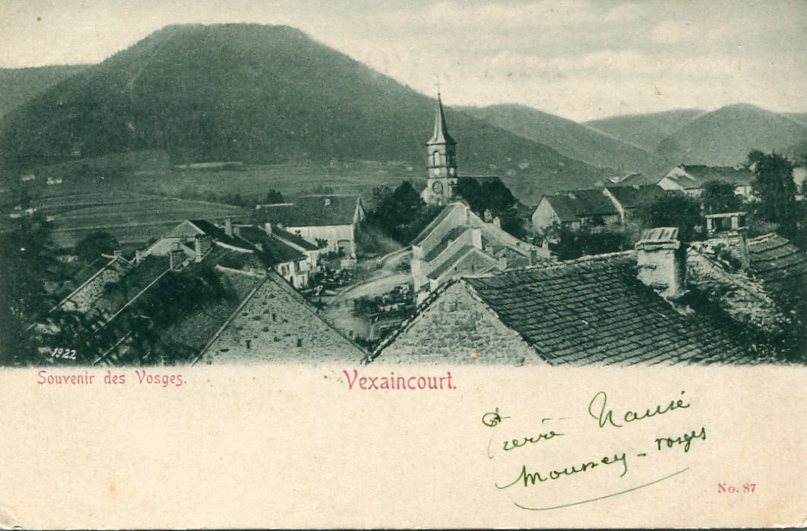 1922
Souvenir des Vosges.
Vexaincourt.
Pierre
Moussey - Vosges
No. 87